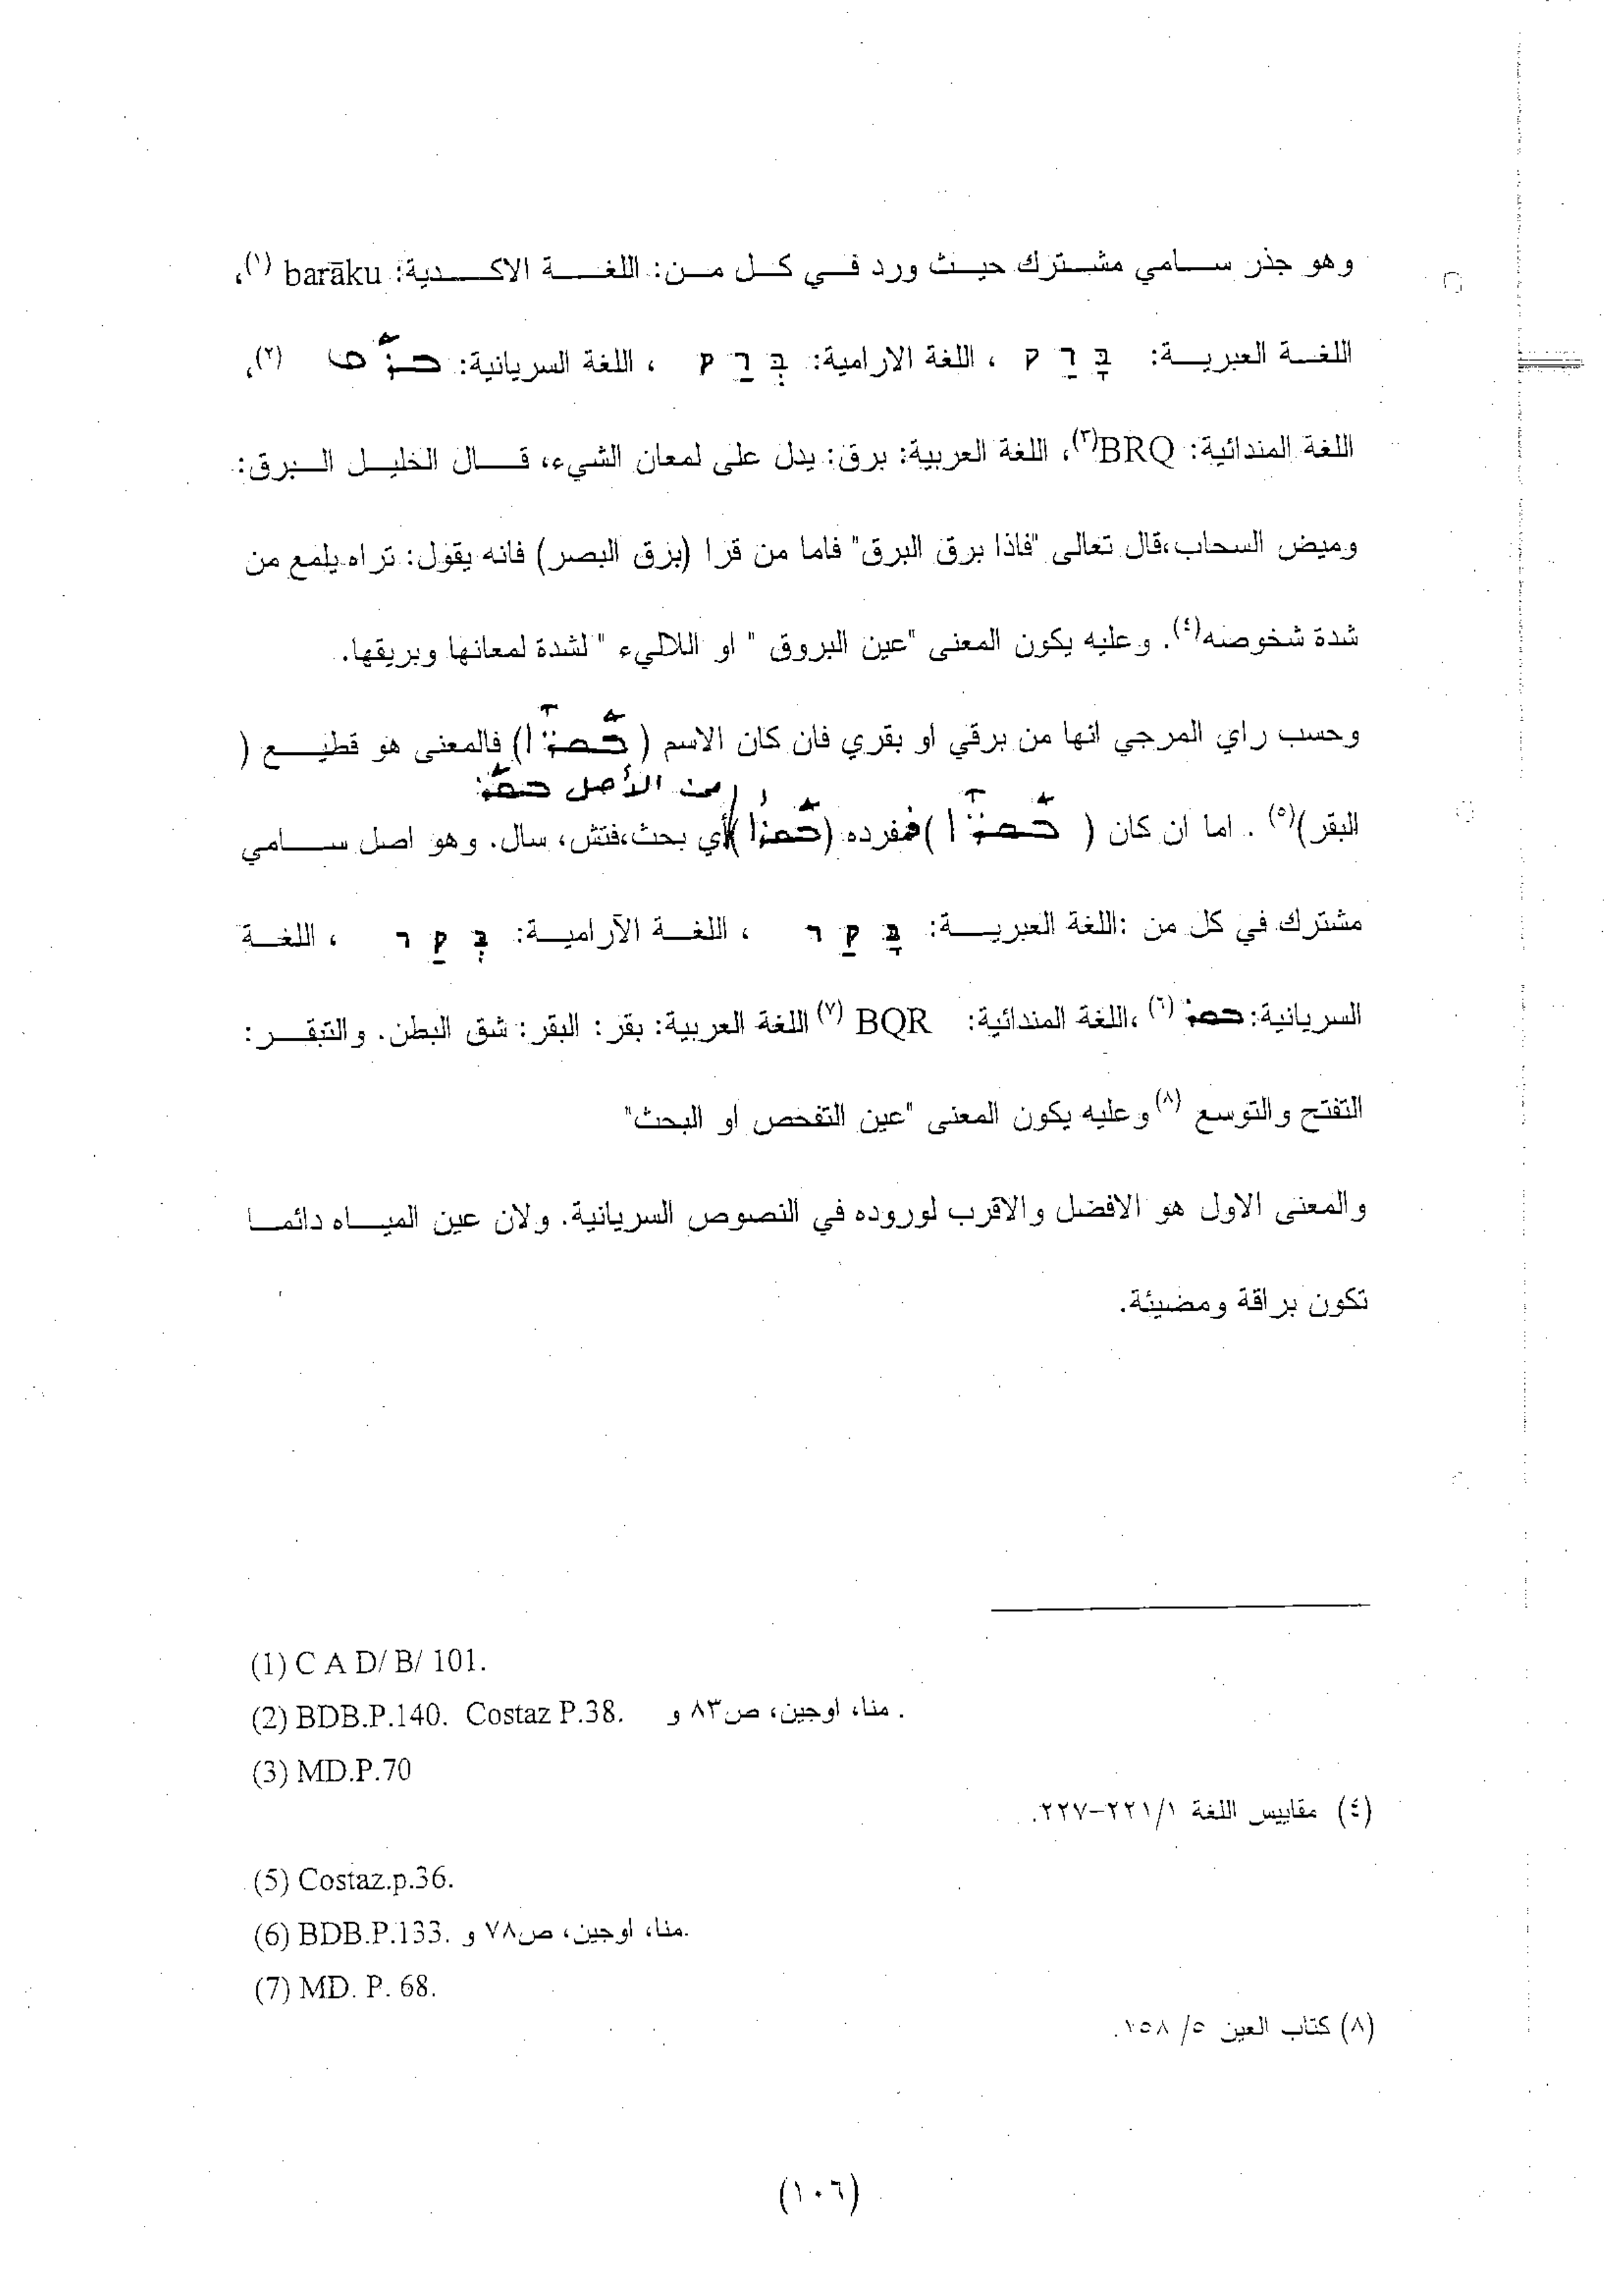 وهو جذر سامي مشترك حيث ورد في كل من: اللغة الاكدية: barāku (١)،
اللغة العبرية: בָּרַק ، اللغة الارامية: בְּרַק ، اللغة السريانية: ܒܪܩ (٢)،
اللغة المندائية: BRQ(٣)، اللغة العربية: برق: يدل على لمعان الشيء، قال الخليل البرق:
وميض السحاب،قال تعالى "فاذا برق البرق" فاما من قرا (برق البصر) فانه يقول: تراه يلمع من
شدة شخوصه(٤). وعليه يكون المعنى "عين البروق " او اللاليء " لشدة لمعانها وبريقها.
وحسب راي المرجي انها من برقي او بقري فان كان الاسم ( ܒܩܪ̈ܐ) فالمعنى هو قطيع (
من الأصل ܒܩܪ
البقر)(٥) . اما ان كان ( ܒܩܪ̈ܐ )فمفرده (ܒܩܪܐ)أي بحث،فتش، سال. وهو اصل سامي
مشترك في كل من :اللغة العبرية: בָּקַר ، اللغة الآرامية: בְּקַר ، اللغة
السريانية: ܒܩܪ (٦) ،اللغة المندائية: BQR (٧) اللغة العربية: بقر: البقر: شق البطن. والتبقر:
التفتح والتوسع (٨) وعليه يكون المعنى "عين التفحص او البحث"
والمعنى الاول هو الافضل والاقرب لوروده في النصوص السريانية. ولان عين المياه دائما
تكون براقة ومضيئة.
(1) C A D/ B/ 101.
(2) BDB.P.140. Costaz P.38. منا، اوجين، ص٨٣ و .
(3) MD.P.70
(٤) مقاييس اللغة ٢٢١/١-٢٢٧.
(5) Costaz.p.36.
(6) BDB.P.133. منا، اوجين، ص٧٨ و.
(7) MD. P. 68.
(٨) كتاب العين ٥/ ١٥٨.
(١٠٦)